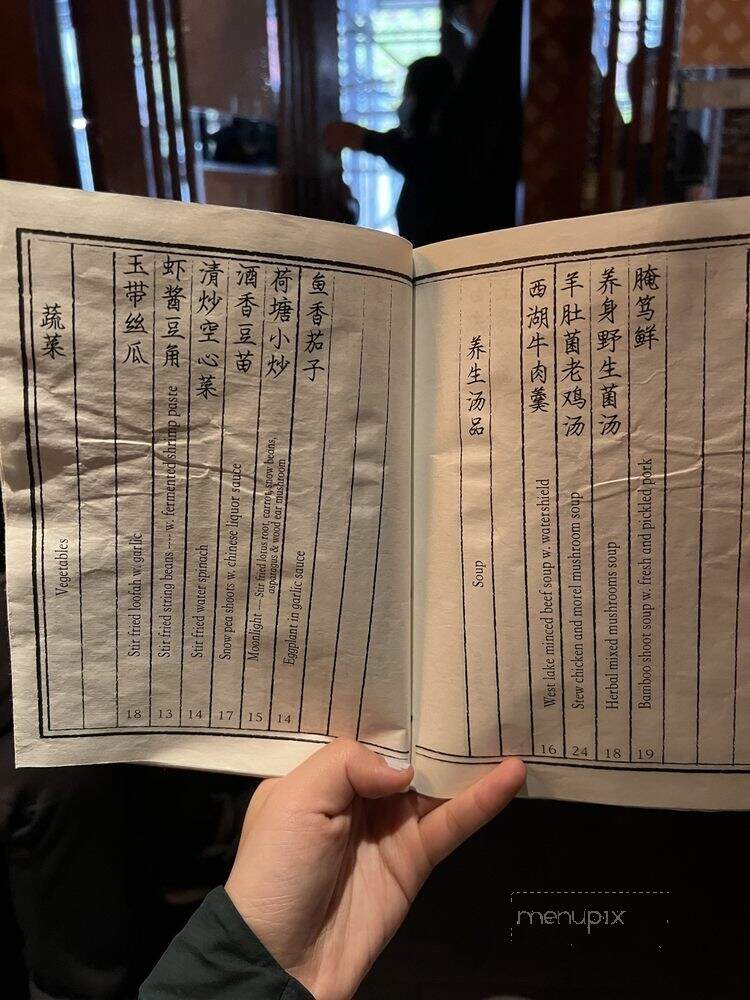 蔬菜
Vegetables
玉带丝瓜
Stir fried loofah w. garlic
18
虾酱豆角
Stir fried string beans ---- w. fermented shrimp paste
13
清炒空心菜
Stir fried water spinach
14
酒香豆苗
Snow pea shoots w. chinese liquor sauce
17
荷塘小炒
Moonlight --- Stir fried lotus root, carrot, snow beans,
asparagus & wood ear mushroom
15
鱼香茄子
Eggplant in garlic sauce
14
养生汤品
Soup
西湖牛肉羹
West lake minced beef soup w. watershield
16
羊肚菌老鸡汤
Stew chicken and morel mushroom soup
24
养身野生菌汤
Herbal mixed mushrooms soup
18
腌笃鲜
Bamboo shoot soup w. fresh and pickled pork
19
menupix